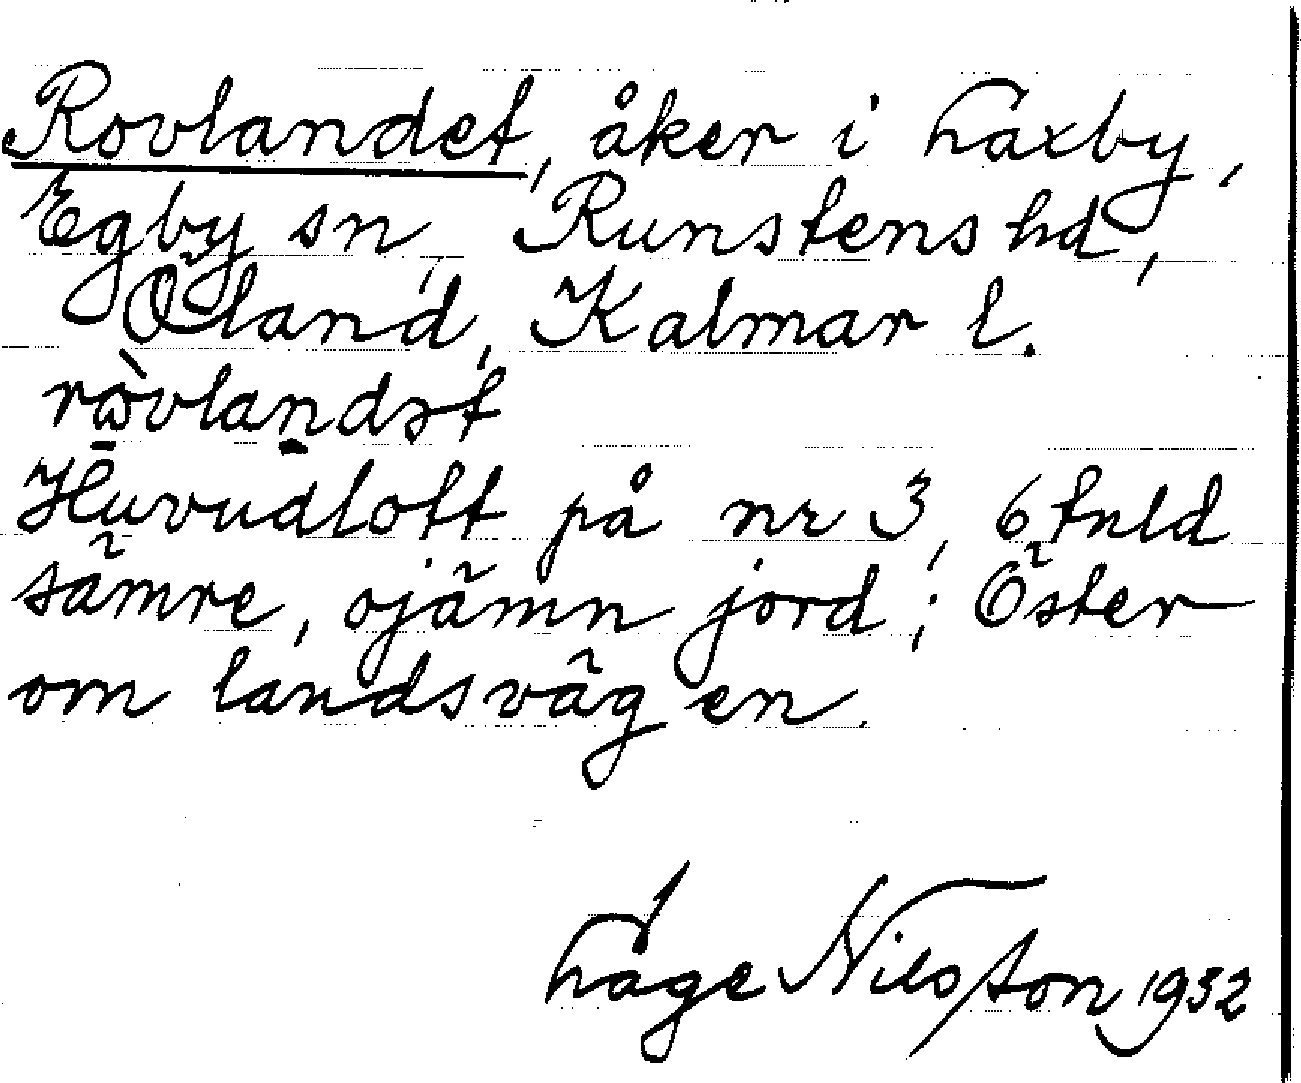 Rovlandet, åker i Laxby,
Egby sn, Runstens hd,
Öland, Kalmar l.
rὼ̱vlaṇdət
Huvudlott på nr 3, 6 tnld
sämre, ojämn jord; Öster
om landsvägen.
Låge Nilsson 1932